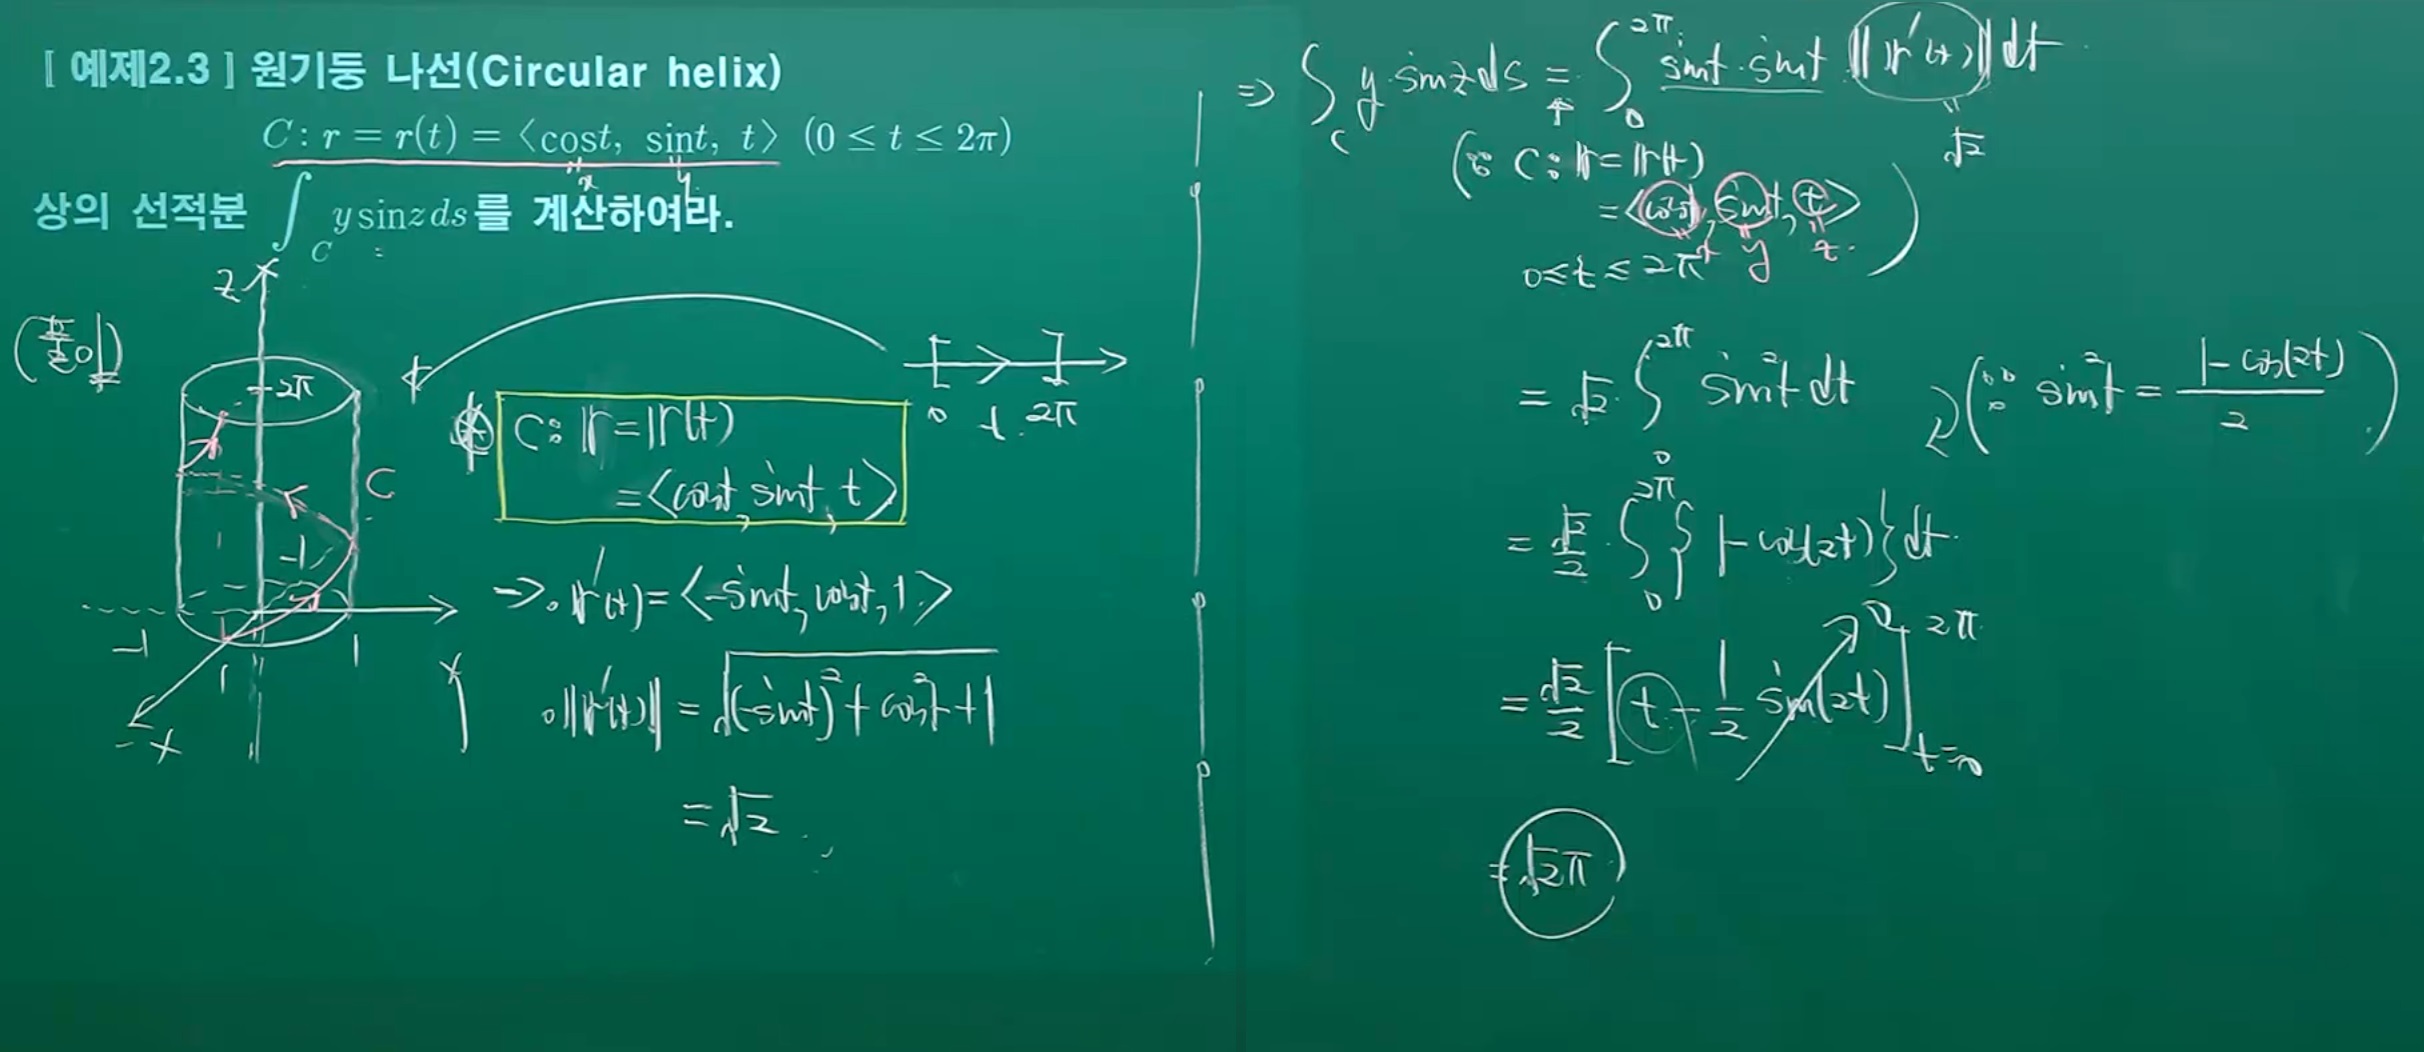 [ 예제2.3 ] 원기둥 나선(Circular helix)
C : r = r(t) = ⟨cost, sint, t⟩ (0 ≤ t ≤ 2π)
x y
상의 선적분 ∫_C y sinz ds 를 계산하여라.
(풀이)
z
2π
C
-1
-1
1
1
x
y
0 t 2π
C: r = r(t)
= <cost, sint, t>
→ · r'(t) = <-sint, cost, 1>
· ||r'(t)|| = √((-sint)² + cos²t + 1)
= √2
⇒ ∫_C y·sinz ds = ∫_0^{2π} sint·sint ||r'(t)|| dt
√2
(∵ C: r = r(t)
= <cost, sint, t>
x y z
0 ≤ t ≤ 2π)
= √2 · ∫_0^{2π} sin²t dt (∵ sin²t = (1 - cos(2t))/2)
= √2/2 · ∫_0^{2π} {1 - cos(2t)} dt
= √2/2 [t - 1/2 sin(2t)]_{t=0}^{2π}
0
= √2π